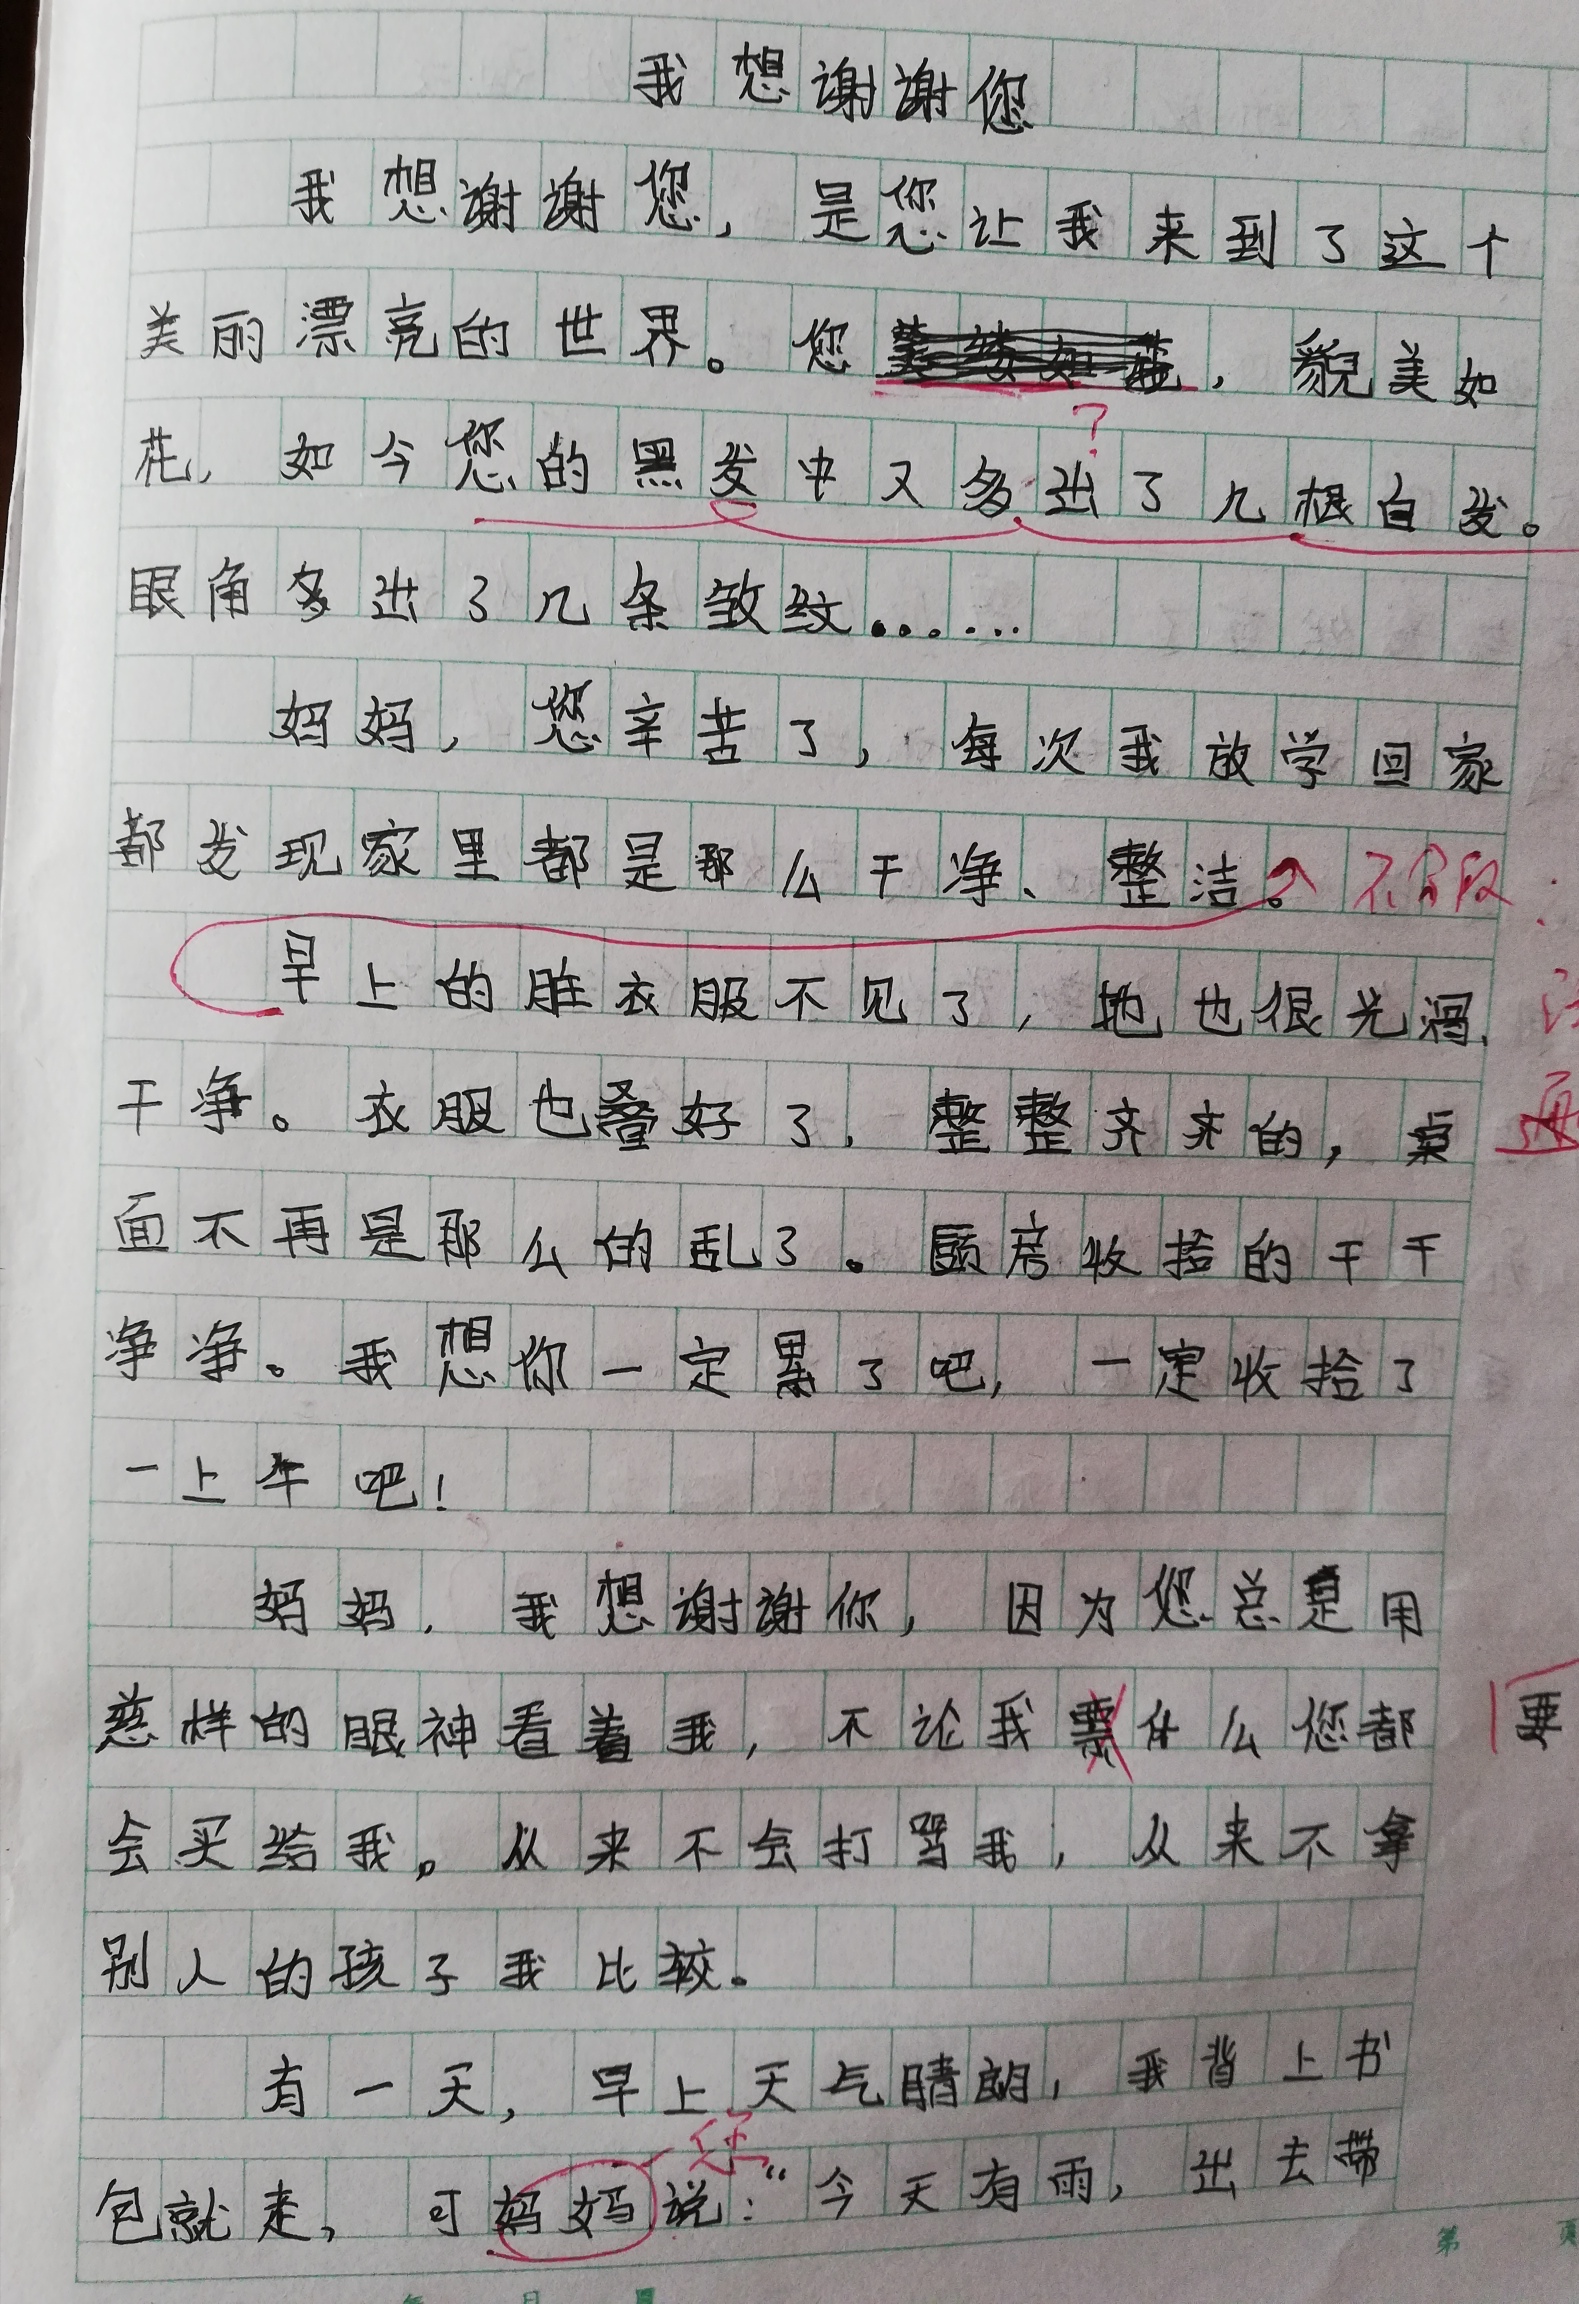 我想谢谢您
我想谢谢您，是您让我来到了这个
美丽漂亮的世界。您，貌美如
花，如今您的黑发中又多出了几根白发。
？
眼角多出了几条皱纹……
妈妈，您辛苦了，每次我放学回家
都发现家里都是那么干净、整洁。不分段
早上的脏衣服不见了，地也很光滑、
干净。衣服也叠好了，整整齐齐的，桌
面不再是那么的乱了。厨房收拾的干干
净净。我想你一定累了吧，一定收拾了
一上午吧！
妈妈，我想谢谢你，因为您总是用
慈祥的眼神看着我，不论我票什么您都 要
会买给我。从来不会打骂我，从来不拿
别人的孩子我比较。
有一天，早上天气晴朗，我背上书
您
包就走，可妈妈说：“今天有雨，出去带
第 页
年 月 日